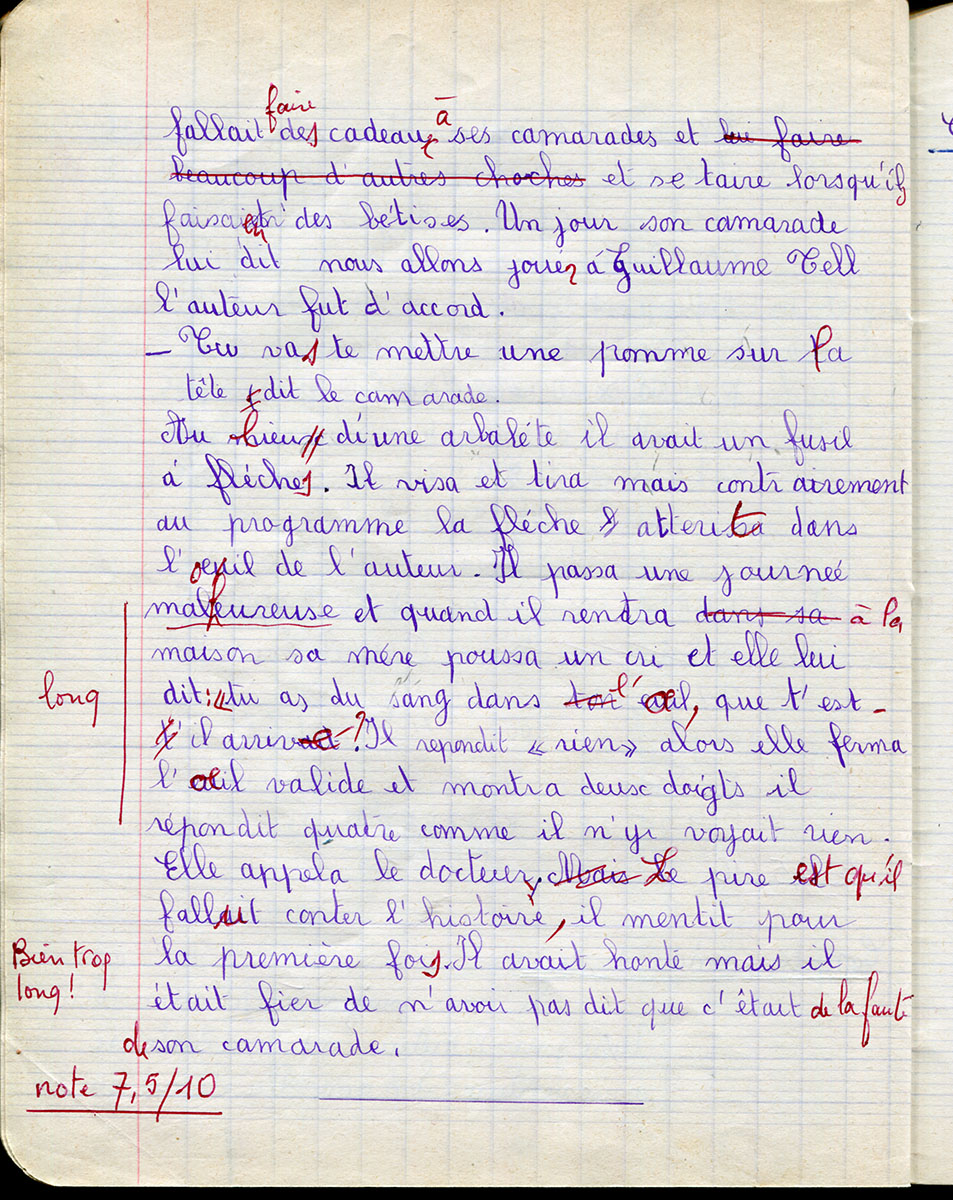 faire à
fallait des cadeaux ses camarades et lui faire
beaucoup d'autres choches et se taire lorsqu'ils
faisaient des bétises. Un jour son camarade
lui dit nous allons jouer á Guillaume Tell
l'auteur fut d'accord.
_ Tu vas te mettre une pomme sur la
tête dit le camarade.
Au lieu d'une arbaléte il avait un fusil
á fléches. Il visa et tira mais contrairement
au programme la fléche atterita dans
l'oeuil de l'auteur. Il passa une journeé
malheureuse et quand il rentra dans sa à la
maison sa mére poussa un cri et elle lui
long
dit: "tu as du sang dans l'oeil, que t'est-
il arrivé? Il repondit «rien» alors elle ferma
l'oeil valide et montra deux doigts il
répondit quatre comme il n'y voyait rien.
Elle appela le docteur, Mais Le pire est qu'il
fallait conter l'histoire, il mentit pour
Bien trop
long!
la première fois. Il avait honte mais il
était fier de n'avoir pas dit que c'était de la faute
de son camarade.
note 7,5/10